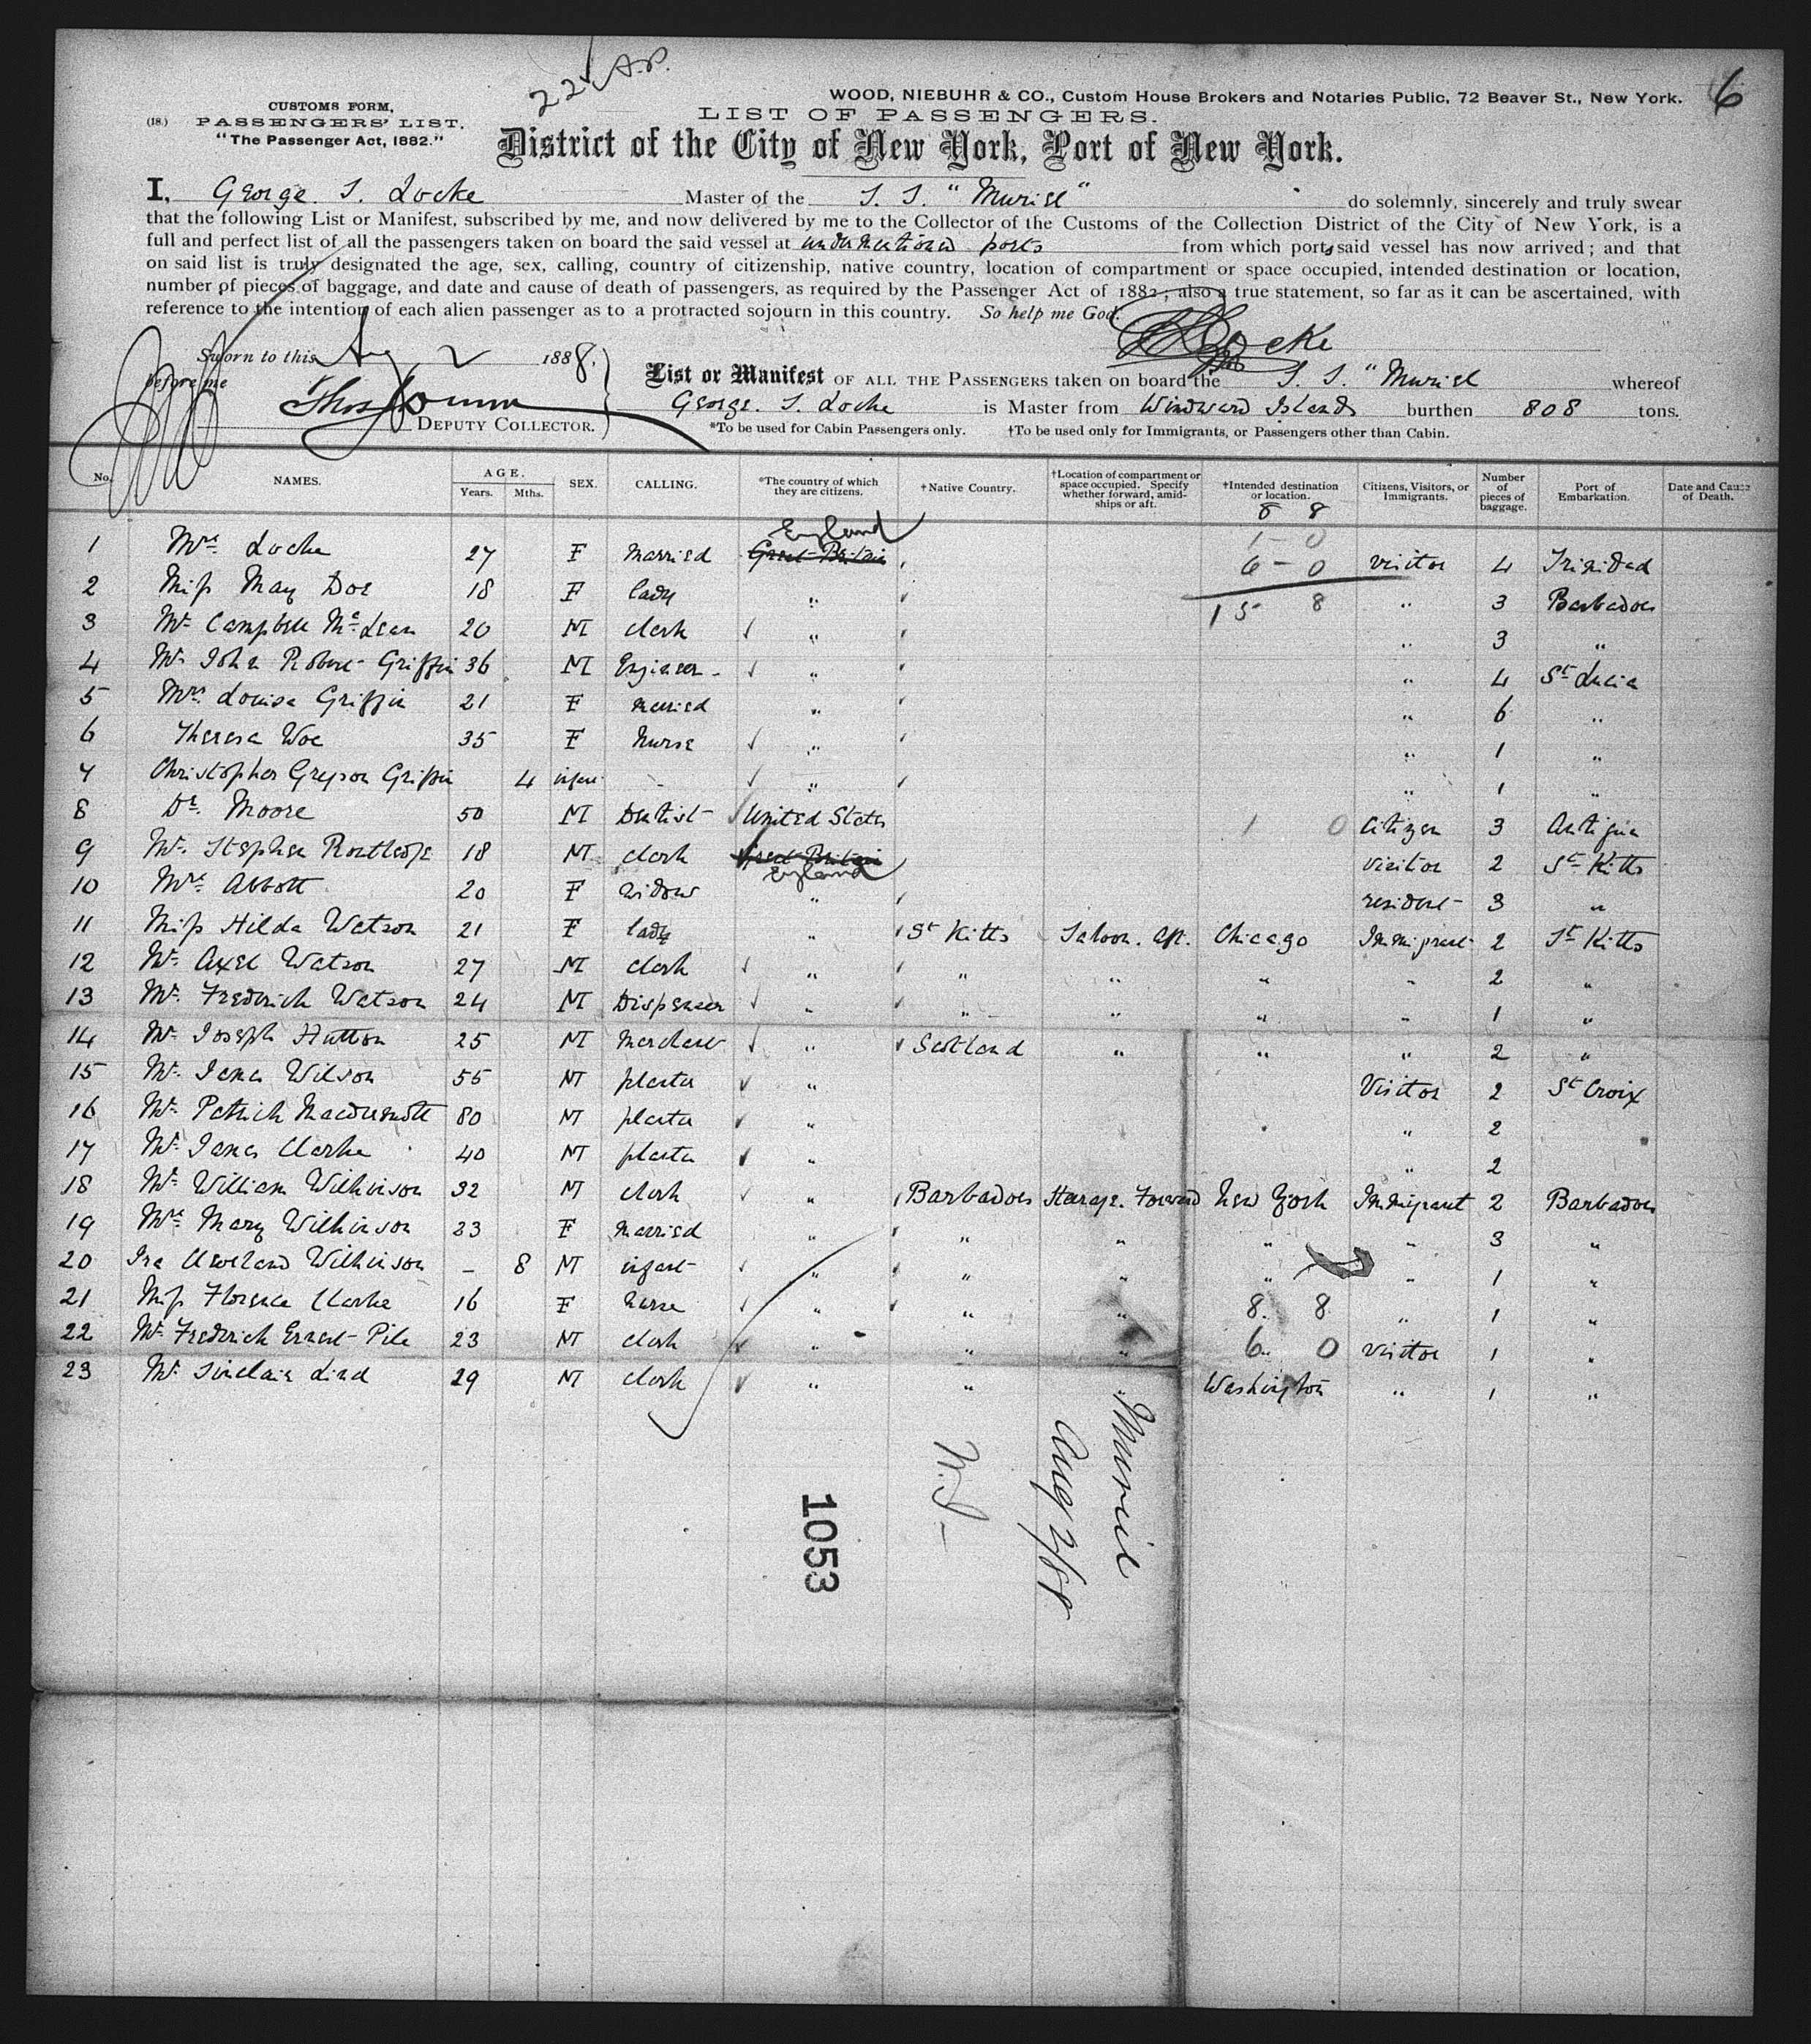 22 A.P.
6
CUSTOMS FORM,
(18.) PASSENGERS' LIST,
"The Passenger Act, 1882."
WOOD, NIEBUHR & CO., Custom House Brokers and Notaries Public, 72 Beaver St., New York.
LIST OF PASSENGERS.
District of the City of New York, Port of New York.
I, George. S. Locke Master of the S. S. "Muriel" do solemnly, sincerely and truly swear
that the following List or Manifest, subscribed by me, and now delivered by me to the Collector of the Customs of the Collection District of the City of New York, is a
full and perfect list of all the passengers taken on board the said vessel at undermentioned ports from which ports said vessel has now arrived; and that
on said list is truly designated the age, sex, calling, country of citizenship, native country, location of compartment or space occupied, intended destination or location,
number of pieces of baggage, and date and cause of death of passengers, as required by the Passenger Act of 1882; also a true statement, so far as it can be ascertained, with
reference to the intention of each alien passenger as to a protracted sojourn in this country. So help me God.
Locke
Sworn to this Aug 2 1888.
before me
Thos
DEPUTY COLLECTOR.
List or Manifest OF ALL THE PASSENGERS taken on board the S. S. "Muriel whereof
George. S. Locke is Master from Windward Islands burthen 808 tons.
*To be used for Cabin Passengers only. †To be used only for Immigrants, or Passengers other than Cabin.
No. NAMES. AGE. Years. Mths. SEX. CALLING. *The country of which they are citizens. †Native Country. †Location of compartment or space occupied. Specify whether forward, amidships or aft. †Intended destination or location. Citizens, Visitors, or Immigrants. Number of pieces of baggage. Port of Embarkation. Date and Cause of Death.
8 8
1 - 0
6 - 0
15 8
1 Mrs. Locke 27 F Married England Great Britain visitor 4 Trinidad
2 Miss May Doe 18 F lady " " 3 Barbados
3 Mr. Campbell McLean 20 M clerk " " 3 "
4 Mr. John Robert Griffin 36 M Engineer " " 4 St. Lucia
5 Mrs. Louisa Griffin 21 F married " " 6 "
6 Theresa Woe 35 F Nurse " " 1 "
7 Christopher Greyson Griffin 4 infant - " " 1 "
8 Dr. Moore 50 M Dentist United States 1 0 Citizen 3 Antigua
9 Mr. Stephen 18 M clerk Great Britain England visitor 2 St. Kitts
10 Mrs. Abbott 20 F widow " resident 3 "
11 Miss Hilda Watson 21 F lady " St Kitts Saloon. aft. Chicago Immigrant 2 St. Kitts
12 Mr. Axel Watson 27 M clerk " " " " " 2 "
13 Mr. Frederick Watson 24 M Dispenser " " " " " 1 "
14 Mr. Joseph Hutton 25 M Merchant " Scotland " " " 2 "
15 Mr. James Wilson 55 M planter " Visitor 2 St Croix
16 Mr. Patrick Macdermott 80 M planter " " 2
17 Mr. James Clarke 40 M planter " " 2
18 Mr. William Wilkinson 32 M clerk " Barbadoes Steerage. Forward New York Immigrant 2 Barbadoes
19 Mrs. Mary Wilkinson 23 F married " " " " " 3 "
20 Ira Cleveland Wilkinson - 8 M infant " " " " " 1 "
21 Miss Florence Clarke 16 F nurse " " " 8. 8 " 1 "
22 Mr. Frederick Ernest Pile 23 M clerk " " " 6 0 visitor 1 "
23 Mr. Sinclair Lind 29 M clerk " " " Washington " 1 "
Muriel
Aug 2/88
1053